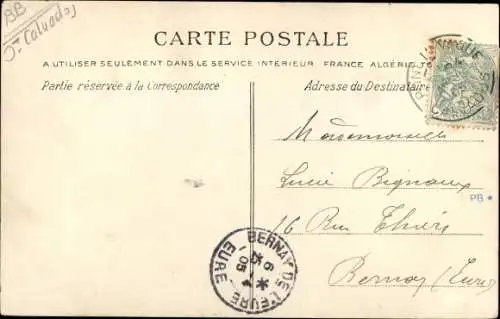 BB
Calvados
CARTE POSTALE
A UTILISER SEULEMENT DANS LE SERVICE INTERIEUR FRANCE ALGÉRIE
Partie réservée à la Correspondance
Adresse du Destinataire
Mademoiselle
Lucie Bignaux
PB *
16 Rue Thiers
Bernay (Eure)
BERNAY DE L'EURE
6
05
EURE
CALVADOS